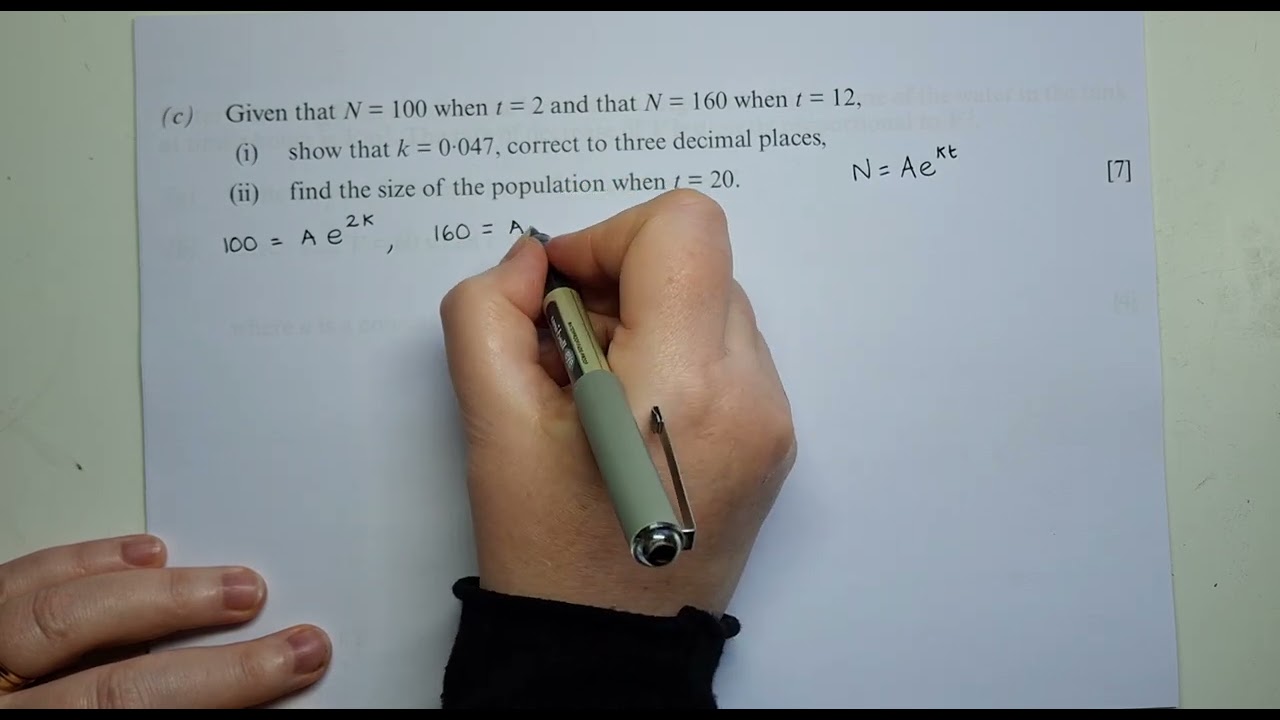 (c) Given that N = 100 when t = 2 and that N = 160 when t = 12,
(i) show that k = 0·047, correct to three decimal places,
(ii) find the size of the population when t = 20.
N = Ae^kt
[7]
100 = A e^2k , 160 = A
uni-ball